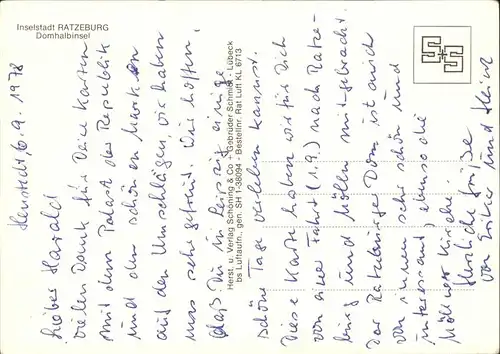 Inselstadt RATZEBURG
Domhalbinsel
Henstedt, 6.9.1978
Lieber Harald!
Vielen Dank für Deine Karten
mit dem Palast der Republik
und den schönen Marken
auf den Umschlägen, wir haben
uns sehr gefreut. Wir hoffen,
daß Du in Leipzig einige
schöne Tage verleben kannst.
Diese Karte haben wir für Dich
von einer Fahrt (1.9.) nach Ratze-
burg und Mölln mitgebracht.
Der Ratzeburger Dom ist auch
von innen sehr schön und
interessant, ebenso die
Möllner Kirche.
Herzliche Grüße
von und Heinz
Herst. u. Verlag Schöning & Co + Gebrüder Schmidt · Lübeck
bs Luftaufn., gen. SH 1-38094 - Bestellnr. Rat Luft KL 6713